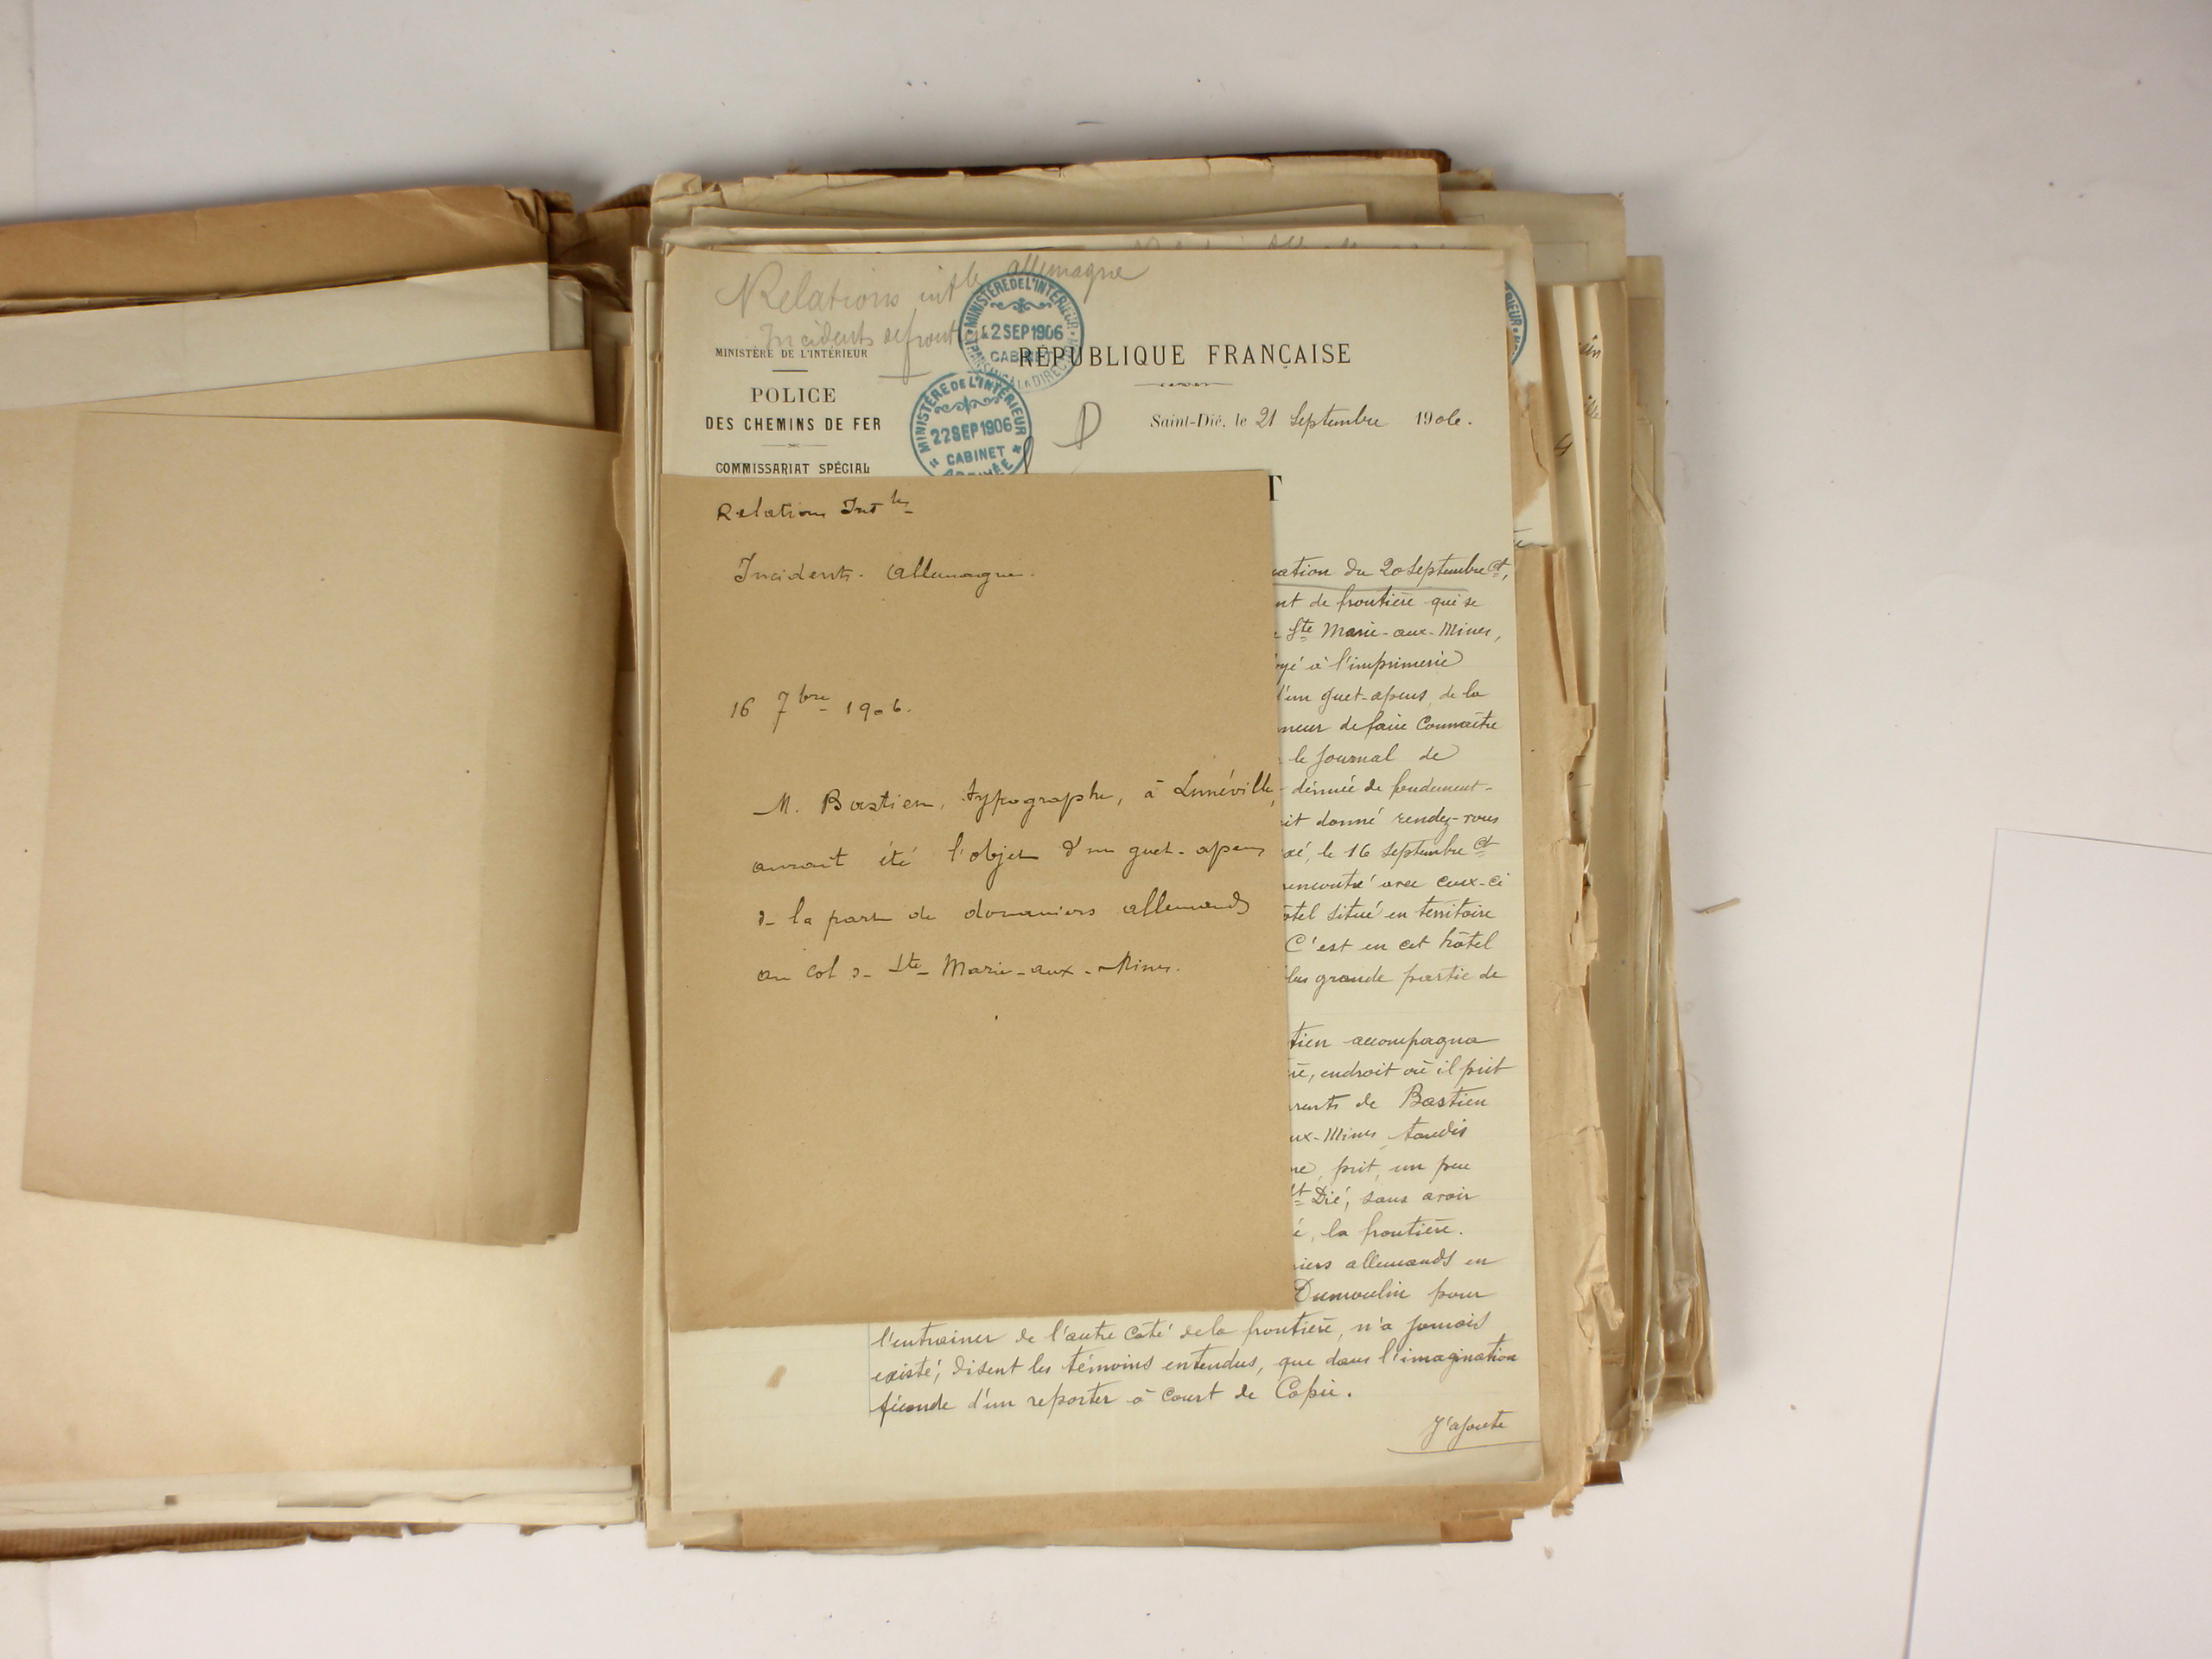 Relations intle allemagne
Incidents de front
MINISTÈRE DE L'INTÉRIEUR
22 SEP 1906
CABINET
RÉPUBLIQUE FRANÇAISE
MINISTÈRE DE L'INTÉRIEUR
POLICE
DES CHEMINS DE FER
COMMISSARIAT SPÉCIAL
MINISTÈRE DE L'INTÉRIEUR
22 SEP 1906
CABINET
ARRIVÉE
Saint-Dié, le 21 Septembre 1906.
T
Relations Intles
Incidents. Allemagne.
16 7bre 1906.
M. Bastien, typographe, à Lunéville,
aurait été l'objet d'un guet-apens
de la part de douaniers allemands
au col de Ste Marie-aux-Mines.
cation du 20 Septembre ct,
nt de frontière qui se
Ste Marie-aux-Mines,
oyé à l'imprimerie
d'un guet-apens, de la
neur de faire connaître
le Journal de
dénuée de fondement-
it donné rendez-vous
xé, le 16 Septembre ct
rencontré avec ceux-ci
ôtel situé en territoire
C'est en cet hôtel
lus grande partie de
tien accompagna
re, endroit où il prit
rents de Bastien
ux-Mines, tandis
ne, prit, un peu
St Dié, sans avoir
é, la frontière.
niers allemands en
Dumoulin pour
l'entrainer de l'autre côté de la frontière, n'a jamais
existé, disent les témoins entendus, que dans l'imagination
féconde d'un reporter à court de Copie.
J'ajoute